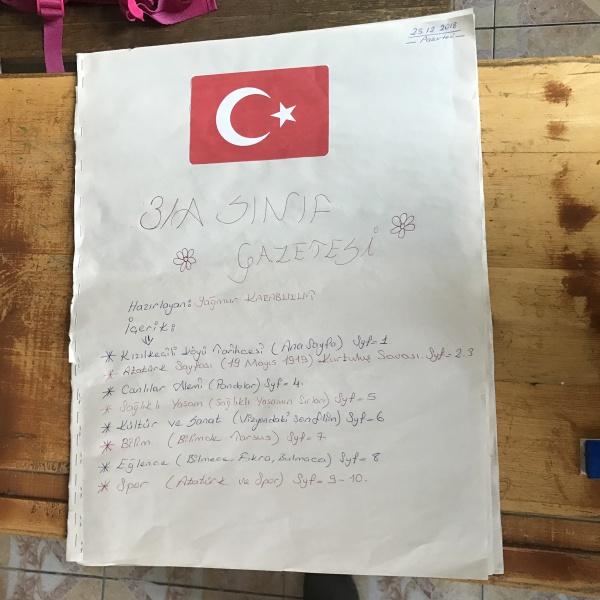 25.12.2018
Pazartesi
3/A SINIF
GAZETESİ
Hazırlayan: Yağmur
İçerik:
* Kızılkeçili Köyü Tarihçesi (Ana Sayfa) Syf=1
* Atatürk Sayfası (19 Mayıs 1919) Kurtuluş Savaşı. Syf=2.3
* Canlılar Alemi (Pandalar) Syf=4.
* Sağlıklı Yaşam (Sağlıklı Yaşamın Sırları) Syf=5
* Kültür ve Sanat (Vizyondaki Son film) Syf=6
* Bilim (Bilimde Tarsus) Syf=7
* Eğlence (Bilmece, Fıkra, Bulmaca) Syf=8
* Spor (Atatürk ve Spor) Syf=9-10.